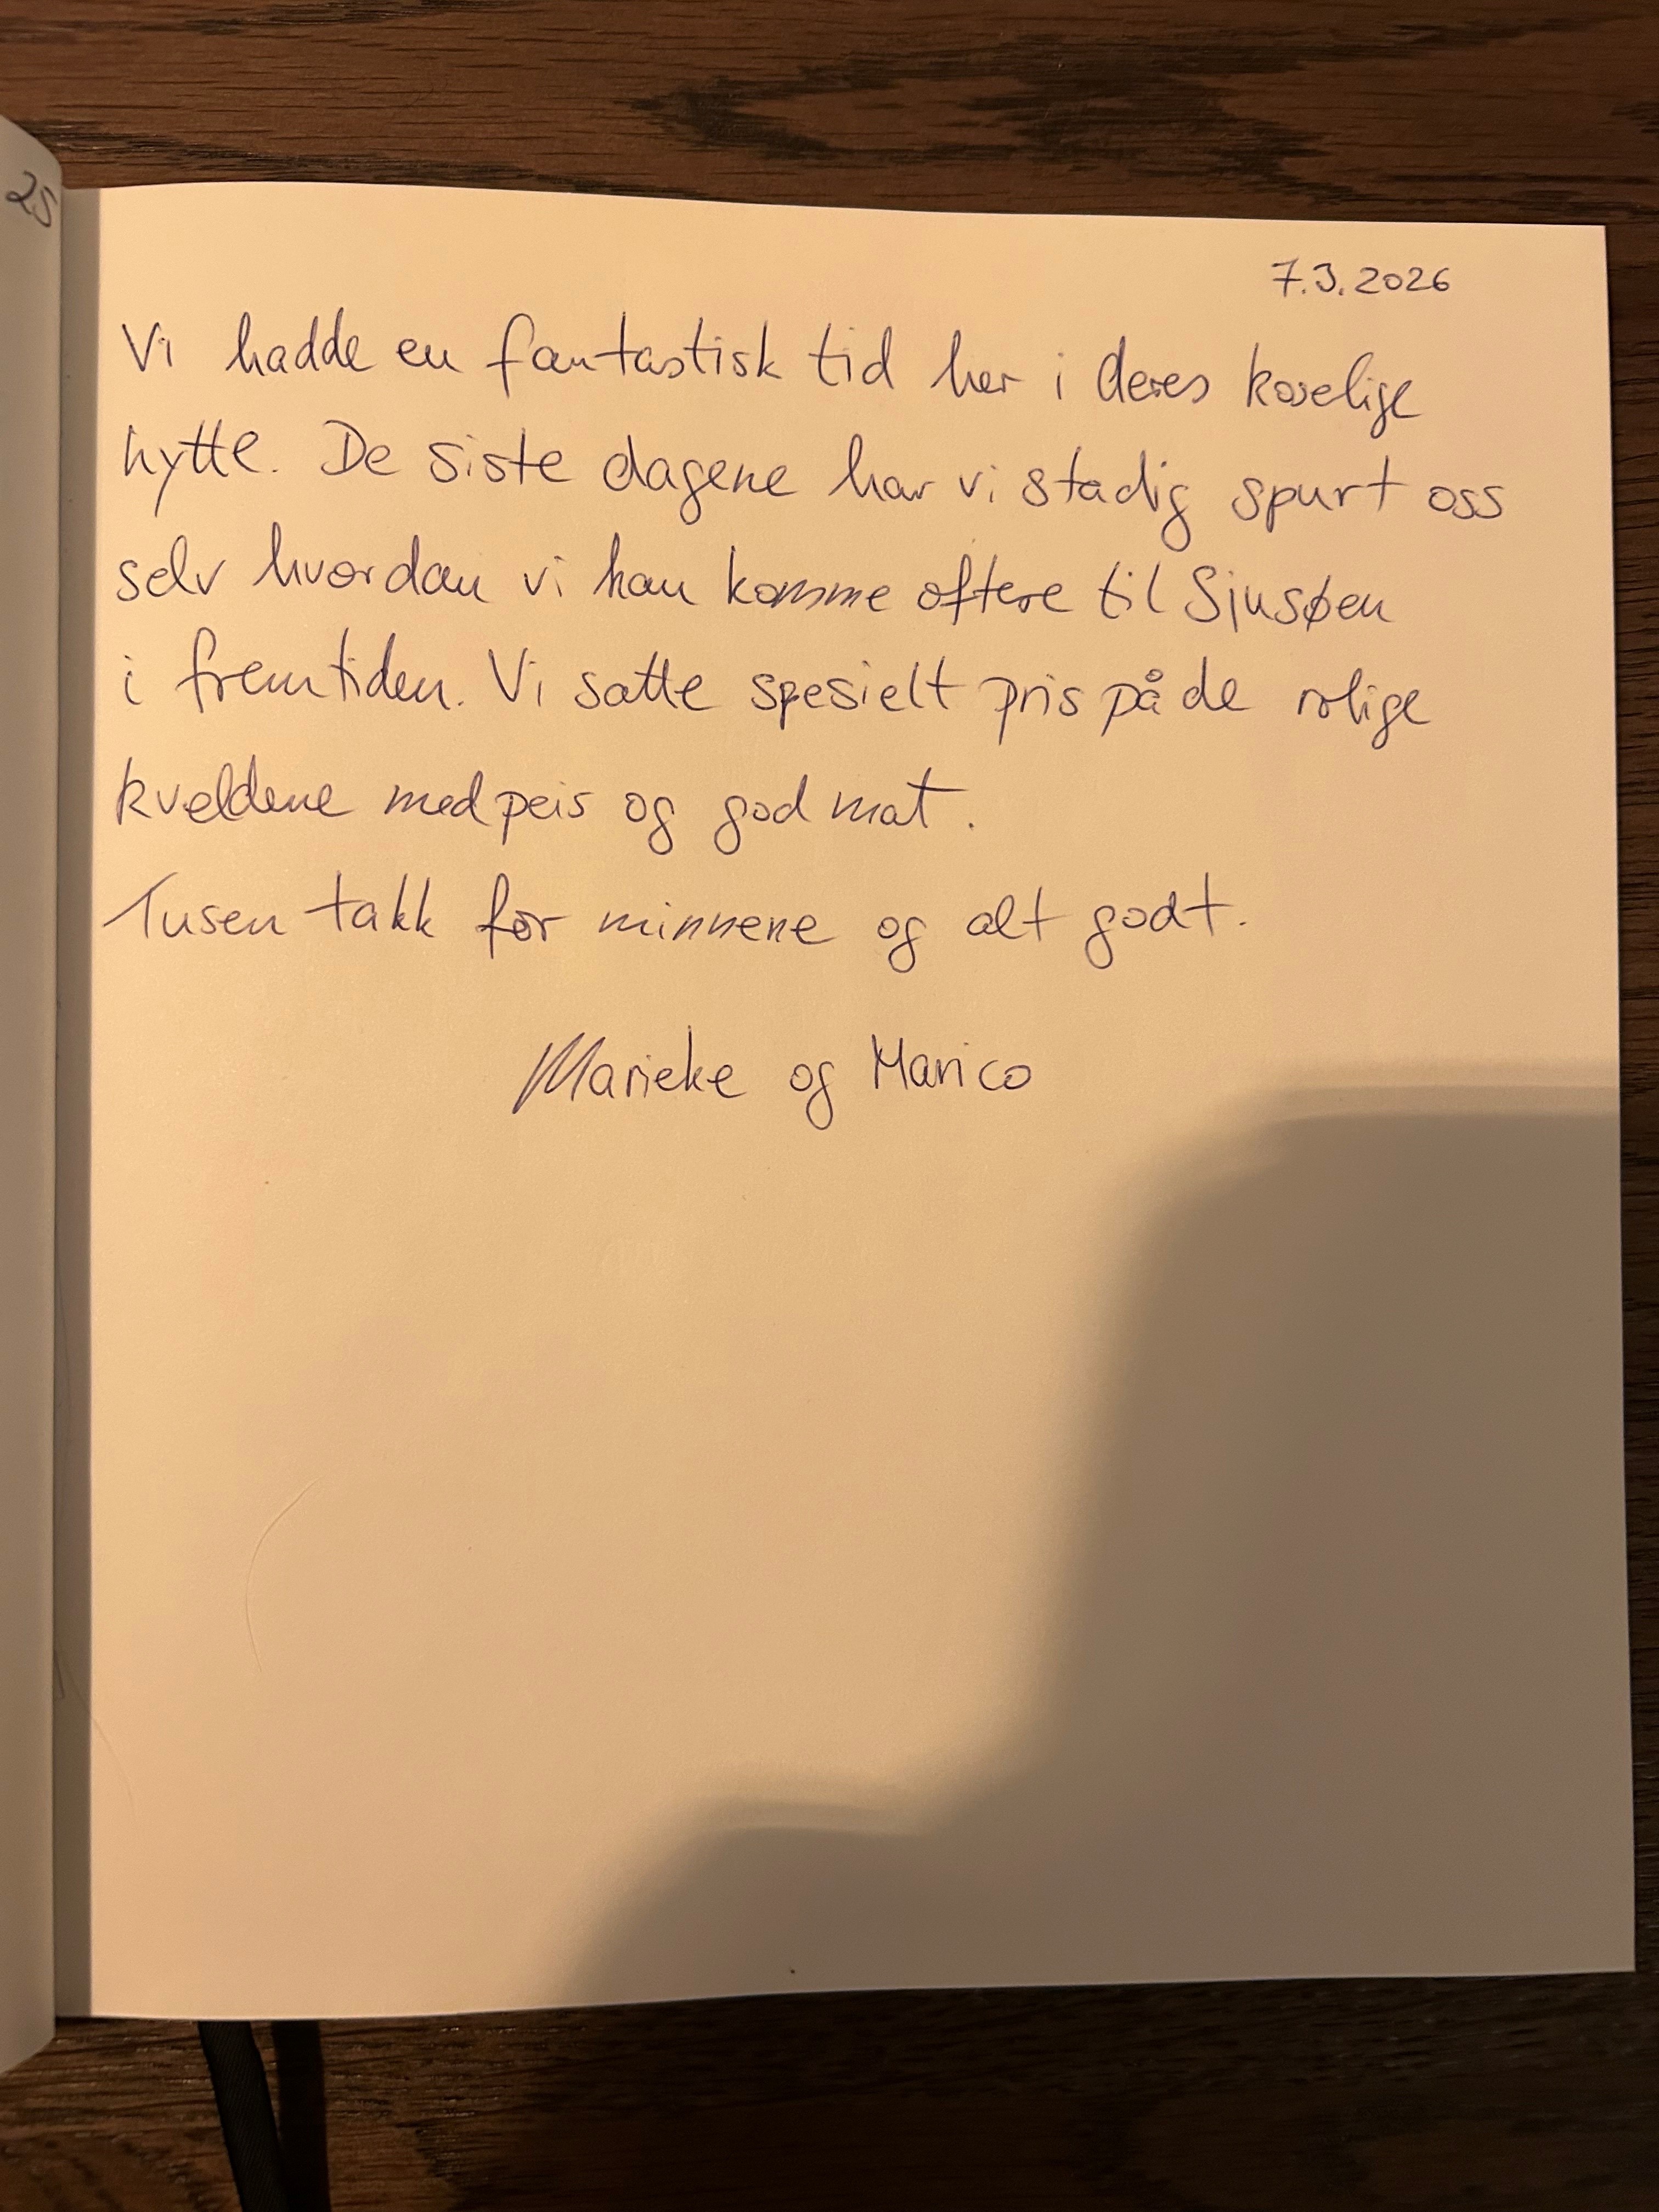 25
7.3.2026
Vi hadde en fantastisk tid her i deres koselige
hytte. De siste dagene har vi stadig spurt oss
selv hvordan vi kan komme oftere til Sjusøen
i fremtiden. Vi satte spesielt pris på de rolige
kveldene med peis og god mat.
Tusen takk for minnene og alt godt.
Marieke og Marico